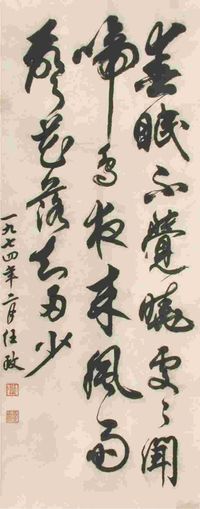 春眠不覺曉處々聞
啼鳥夜來風雨
聲花落知多少
一九七四年二月任政